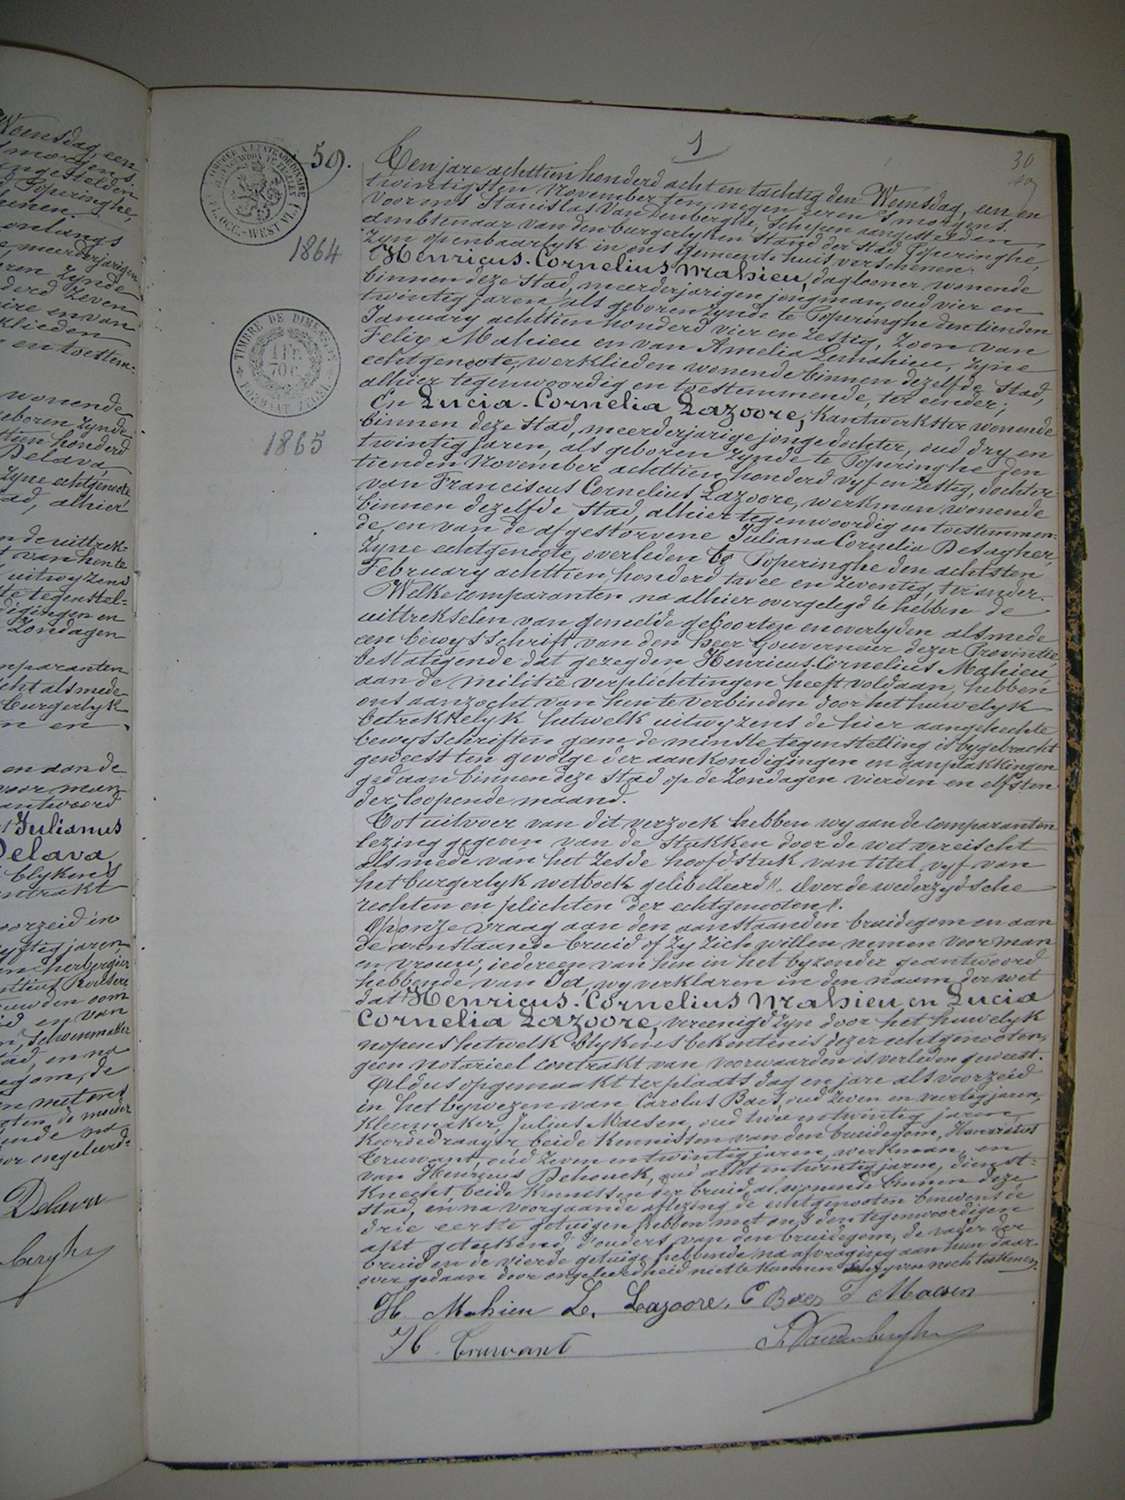 1
30
59.
1864
TIMBRE DE DIMENSION
1 FR.
70 C.
1865
Ten jare achttien honderd acht en tachtig den Woensdag, een en
twintigsten November ten negen uren 's morgens.
Voor ons Stanislas Van Denberghe, schepen aangestelden
ambtenaar van den burgerlyken Stand der Stad Poperinghe,
zyn openbaarlyk in ons Gemeente huis verschenen.
Henricus-Cornelius Mahieu, daglooner wonende
binnen deze Stad, meerderjarigen jongman, oud vier en
twintig jaren, als geboren zynde te Poperinghe den tienden
January achttien honderd vier en zestig, zoon van
Felix Mahieu en van Amelia Lemahieu, zyne
echtgenoote, werklieden wonende binnen dezelfde Stad,
alhier tegenwoordig en toestemmende, ter eender;
En Lucia-Cornelia Lazoore, kantwerkster wonende
binnen deze Stad, meerderjarige jonge dochter, oud dry en
twintig jaren, als geboren zynde te Poperinghe den
tienden November achttien honderd vyf en zestig, dochter
van Franciscus Cornelius Lazoore, werkman wonende
binnen dezelfde Stad, alhier tegenwoordig en toestemmen-
de, en van de afgestorvene Juliana Cornelia Desagher,
zyne echtgenoote, overleden te Poperinghe den achtsten
February achttien honderd twee en zeventig, ter ander.
Welke comparanten na alhier overgelegd te hebben de
uittrekselen van gemelde geboorten en overlyden alsmede
een bewysschrift van den Heer Gouverneur dezer Provintie,
bestatigende dat gezegden Henricus-Cornelius Mahieu,
aan de militie verplichtingen heeft voldaan, hebben
ons aanzocht van hun te verbinden door het huwelyk
betrekkelyk hetwelk uitwyzens de hier aangehechte
bewysschriften geene de minste tegenstelling is bygebracht
geweest ten gevolge der aankondigingen en aanplakkingen
gedaan binnen deze Stad op de Zondagen vierden en elfsten
der loopende maand.
Tot uitvoer van dit verzoek hebben wy aan de comparanten
lezing gegeven van de stukken door de wet vereischt
alsmede van het zesde hoofdstuk van titel vyf van
het burgerlyk wetboek gelibelleerd "Over de wederzydsche
rechten en plichten der echtgenooten".
Op onze vraag aan den aanstaanden bruidegom en aan
de aanstaande bruid of zy zich willen nemen voor man
en vrouw, iedereen van hun in het byzonder geantwoord
hebbende van Ja, wy verklaren in den naam der wet
dat Henricus-Cornelius Mahieu en Lucia
Cornelia Lazoore, vereenigd zyn door het huwelyk
nopens hetwelk blykens bekentenis dezer echtgenooten,
geen notarieel contrakt van voorwaarden is verleden geweest.
Aldus opgemaakt ter plaats dag en jare als voorzeid
in het bywezen van Carolus Baes, oud zeven en veertig jaren,
kleermaker, Julius Maesen, oud twee en twintig jaren,
koordedraayer beide kennissen van den bruidegom, Henricus
Cruwant, oud zeven en twintig jaren, werkman, en
van Henricus Dehouck, oud acht en twintig jaren, dienst-
knecht, beide kennissen der bruid, al wonende binnen deze
Stad, en na voorgaande aflezing de echtgenooten benevens de
drie eerste getuigen hebben met ons den tegenwoordigen
akt geteekend, d'ouders van den bruidegom, de vader der
bruid en de vierde getuige hebbende na afvraging aan hun daar-
over gedaan door ongeleerdheid niet te kunnen schryven noch teekenen.
H Mahieu L. Lazoore. C Baes J Maesen
H. Cruwant S. Vandenberghe